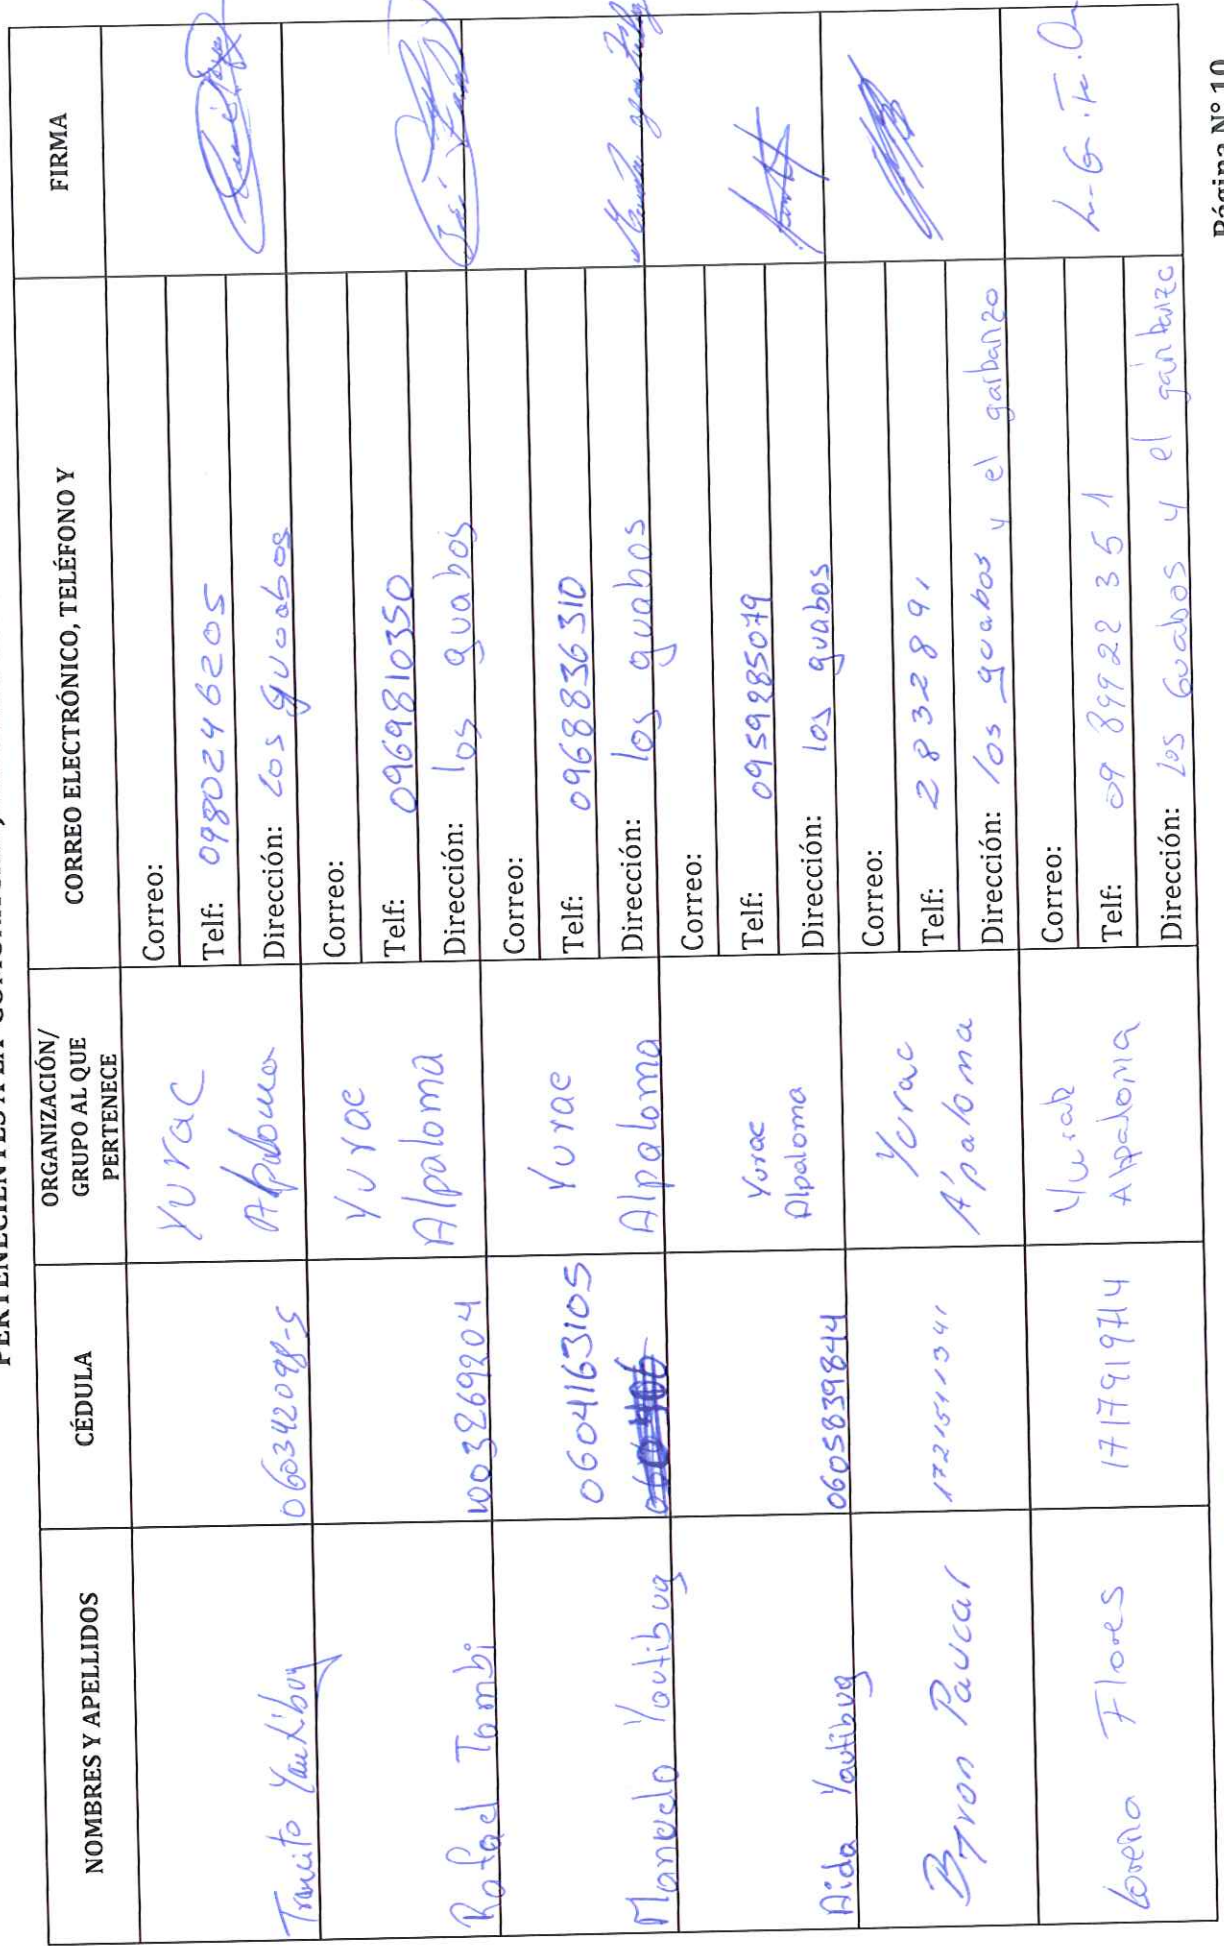 NOMBRES Y APELLIDOS
CÉDULA
ORGANIZACIÓN/
GRUPO AL QUE
PERTENECE
CORREO ELECTRÓNICO, TELÉFONO Y
FIRMA
Transito Yautibug
060342098-5
Yurac
Alpaloma
Correo:
Telf: 0980246205
Dirección: Los guabos
Rafael Tambi
1003269204
Yurac
Alpaloma
Correo:
Telf: 0969810350
Dirección: los guabos
Manuela Yautibug
0604163105
Yurac
Alpaloma
Correo:
Telf: 0968836310
Dirección: los guabos
Aida Yautibug
0605839844
Yurac
Alpaloma
Correo:
Telf: 0959285079
Dirección: los guabos
Byron Paucar
1721511341
Yurac
A'paloma
Correo:
Telf: 2832891
Dirección: los guabos y el garbanzo
Lorena Flores
1717919714
Yurak
Alpaloma
Correo:
Telf: 09 89922351
Dirección: Los Guabos y el garbanzo
Página N° 10